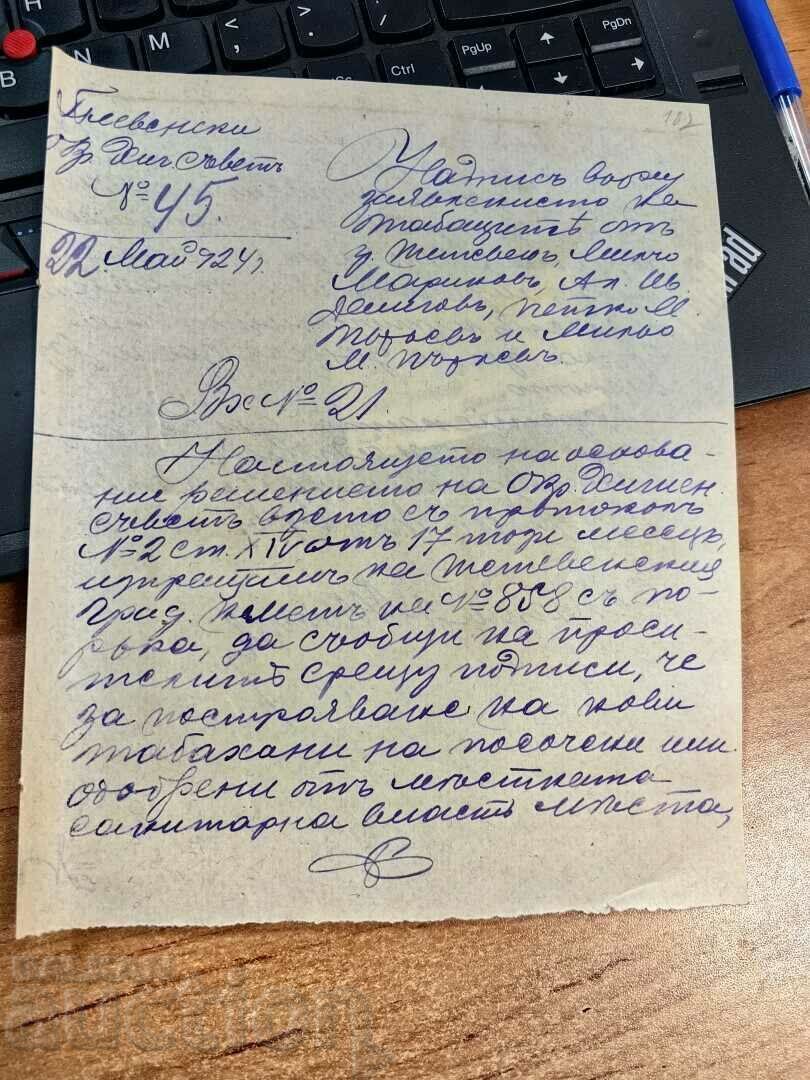 Плевенски
Окр. Хиг. Съветъ
№ 45.
22 Май 924 г.
187
Надпис върху
заявлението на
табацитѣ отъ
г. Тетевенъ, Милчо
Мариновъ, Ал. Ив.
Петко М.
и Милко
М.
Вх № 21.
Настоящето на основа-
ние решението на Окр. Хигиен.
съветъ взето съ протоколъ
№ 2 ст. XIV отъ 17 този месецъ,
изпращамъ на Тетевенския
Град. Кметъ на № 858 съ по-
рѫка, да съобщи на проси-
телитѣ срещу подписи, че
за построяване на нови
табахани на посочени или
одобрени отъ мѣстната
санитарна власть мѣста,
B
N
M
<
,
>
.
?
/
PgUp
PgDn
Ctrl
BALKAN
auction